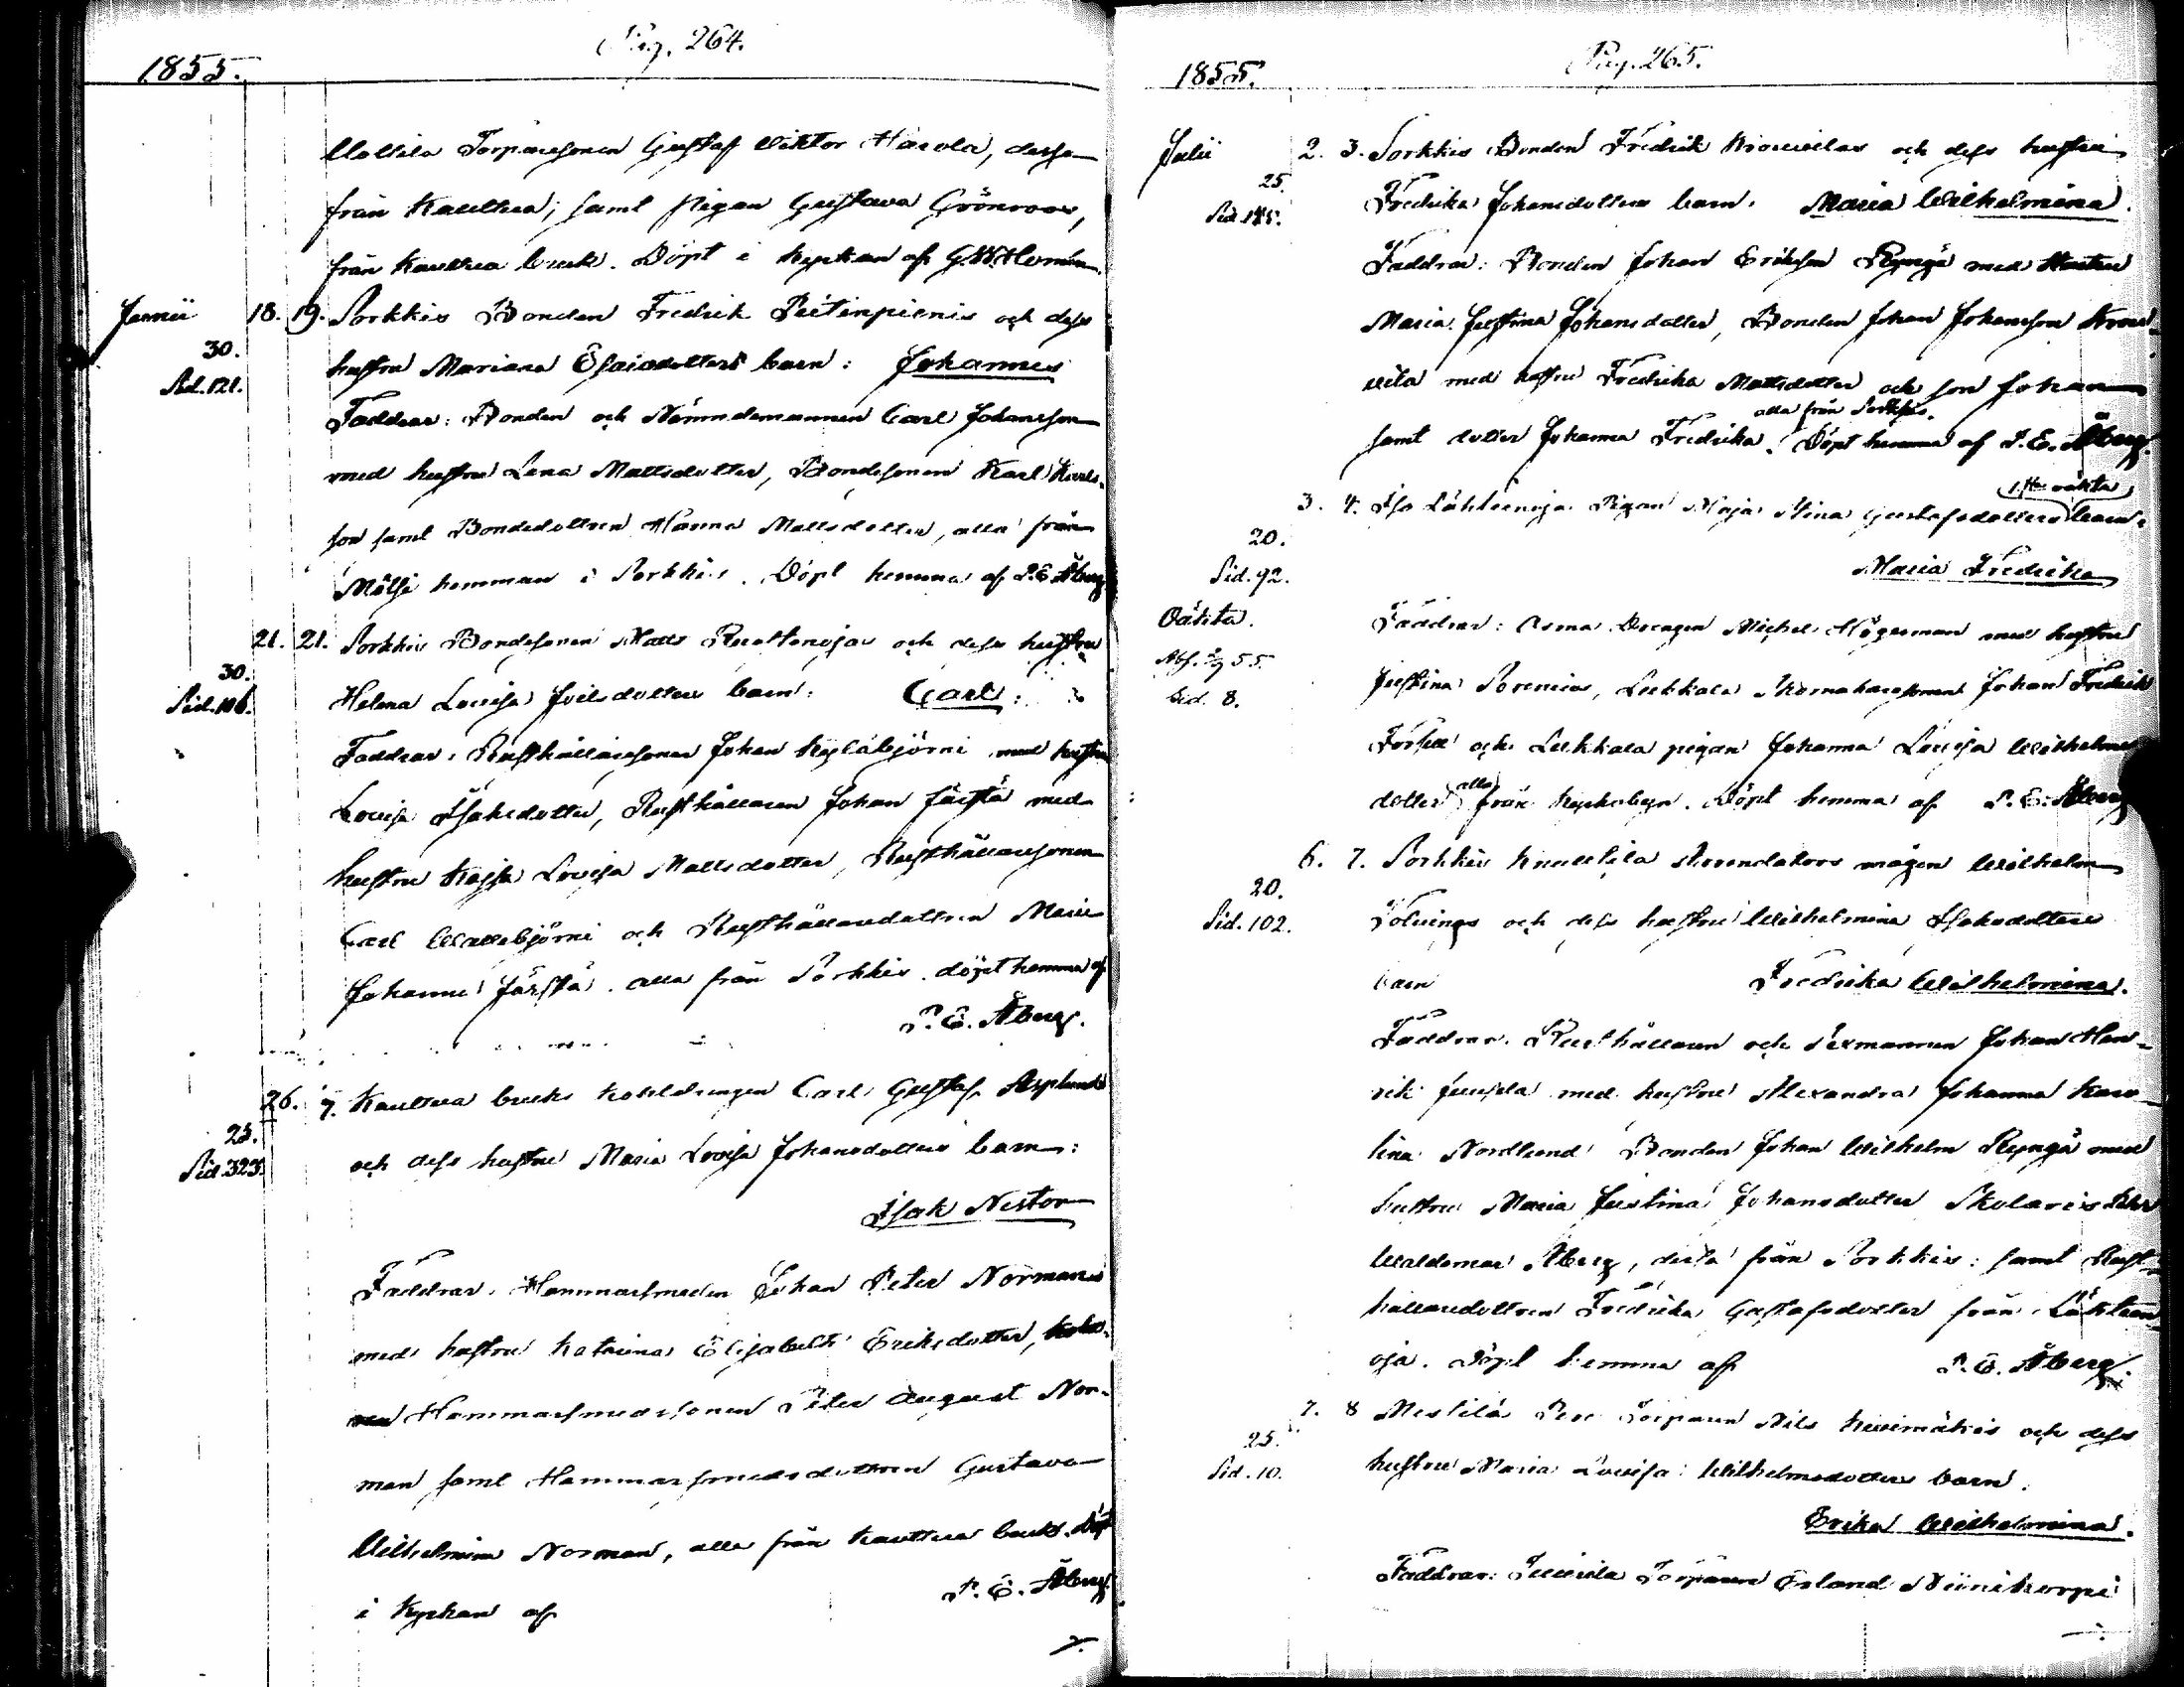 Pag. 264.
1855.
Mattila Torparesonen Gustaf Wiktor Harola, dessa
från Kauttua; samt pigan Gustava Grönroos,
från Kauttua bruk. Döpt i kyrkan af
Junii 18. 19. Sorkkis Bonden Fredrik Peitinpienis och dess
30.
Sid. 121.
hustru Mariana Esaiædotters barn: Johannes
Faddrar: Bonden och Nämndemannen Carl Johansson
med hustru Lena Mattsdotter, Bondesonen Karl Karls-
son samt Bondedottren Hanna Mattsdotter, alla från
Mälsi hemman i Sorkkis. Döpt hemma af P. E. Åberg
21. 21. Sorkkis Bondesonen Matts Ruottenojas och dess hustru
30.
Sid. 106.
Helena Lovisa Joelsdotters barn: Carl:
Faddrar: Rusthållaresonen Johan Kyläbjörni med hustru
Lovisa Isaksdotter, Rusthållaren Johan Järstä med
hustru Kajsa Lovisa Mattsdotter, Rusthållaresonen
Carl Wallebjörni och Rusthållaredottren Maria
Johanna Järstä. alla från Sorkkis. döpt hemma af
P. E. Åberg.
26. 7. Kauttua bruks koldrengen Carl Gustaf Asplunds
25.
Sid. 323.
och dess hustru Maria Lovisa Johansdotters barn:
Isak Nestor
Faddrar: Hammarsmeden Johan Peter Norman
med hustru Katarina Elisabeth Eriksdotter,
Hammarsmedssonen Peter August Nor-
man samt Hammarsmedsdottren Gustava
Wilhelmina Norman, alla från Kauttua bruk. Döpt
i Kyrkan af P. E. Åberg.
Pag. 265.
1855.
Julii 2. 3. Sorkkis Bonden Fredrik Knouvilas och dess hustru
25.
Sid. 185.
Fredrika Johansdotters barn: Maria Wilhelmina.
Faddrar: Bonden Johan Eriksson Ryngä med hustru
Maria Justina Johansdotter, Bonden Johan Johansson
vila med hustru Fredrika Mattsdotter och son Johan
alla från Sorkkis.
samt dotter Johanna Fredrika. Döpt hemma af P. E. Åberg.
3. 4. Iso Lähteenoja Pigan Maja Stina Gustafsdotters barn:
20.
Sid. 92.
Maria Fredrika
Oäkta.
Faddrar: Drengen Michel Högerman med hustru
Sid. 8.
Justina Florenius, Lukkala Skomakaresonen Johan Fredrik
Forsell och Lukkala pigan Johanna Lovisa Wilhelms
alla
dotter från kyrkobyn. Döpt hemma af P. E. Åberg
6. 7. Sorkkis Knuutila Arrendators mågen Wilhelm
20.
Sid. 102.
och dess hustru Wilhelmina Isaksdotters
barn Fredrika Wilhelmina.
Faddrar: Rusthållaren och Sexmannen Johan Hen-
rik Juusela med hustru Alexandra Johanna Karo-
lina Nordlund Bonden Johan Wilhelm Ryngä med
hustru Maria Justina Johansdotter Skolaren
Waldemar Åberg, dessa från Sorkkis: samt Rust-
hållaredottren Fredrika Gustafsdotter från Lähteen-
oja. Döpt hemma af P. E. Åberg.
7. 8 Mestilä Torparen Nils Kuusimäkis och dess
25.
Sid. 10.
hustru Maria Lovisa Wilhelmsdotters barn.
Erika Wilhelmina.
Faddrar: Torparen Erland Niinikorpi